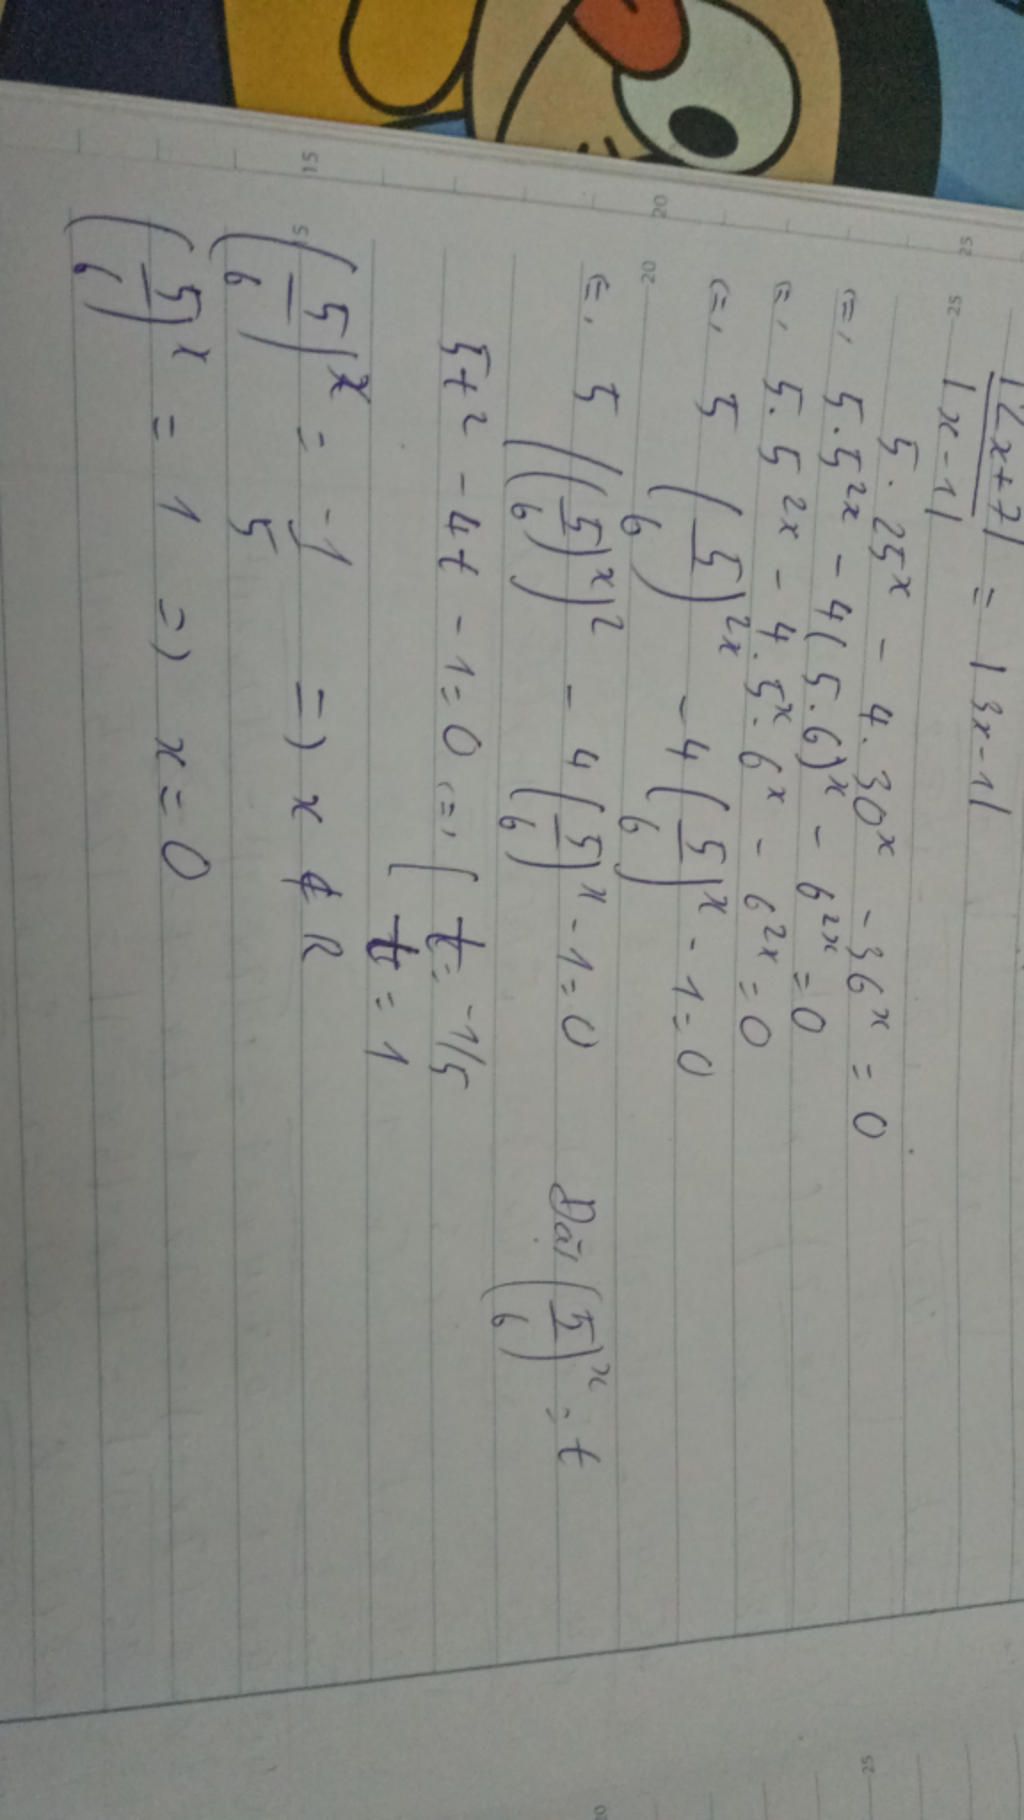 |2x+7| / |x-1| = |3x-1|
5.25^x - 4.30^x - 36^x = 0
<=> 5.5^2x - 4(5.6)^x - 6^2x = 0
<=> 5.5^2x - 4.5^x.6^x - 6^2x = 0
<=> 5(5/6)^2x - 4(5/6)^x - 1 = 0
<=> 5((5/6)^x)^2 - 4(5/6)^x - 1 = 0 Đặt (5/6)^x = t
5t^2 - 4t - 1 = 0 <=> [ t = -1/5
t = 1
(5/6)^x = -1/5 => x ∉ R
(5/6)^x = 1 => x = 0
15
20
25
15
20
25
25
20